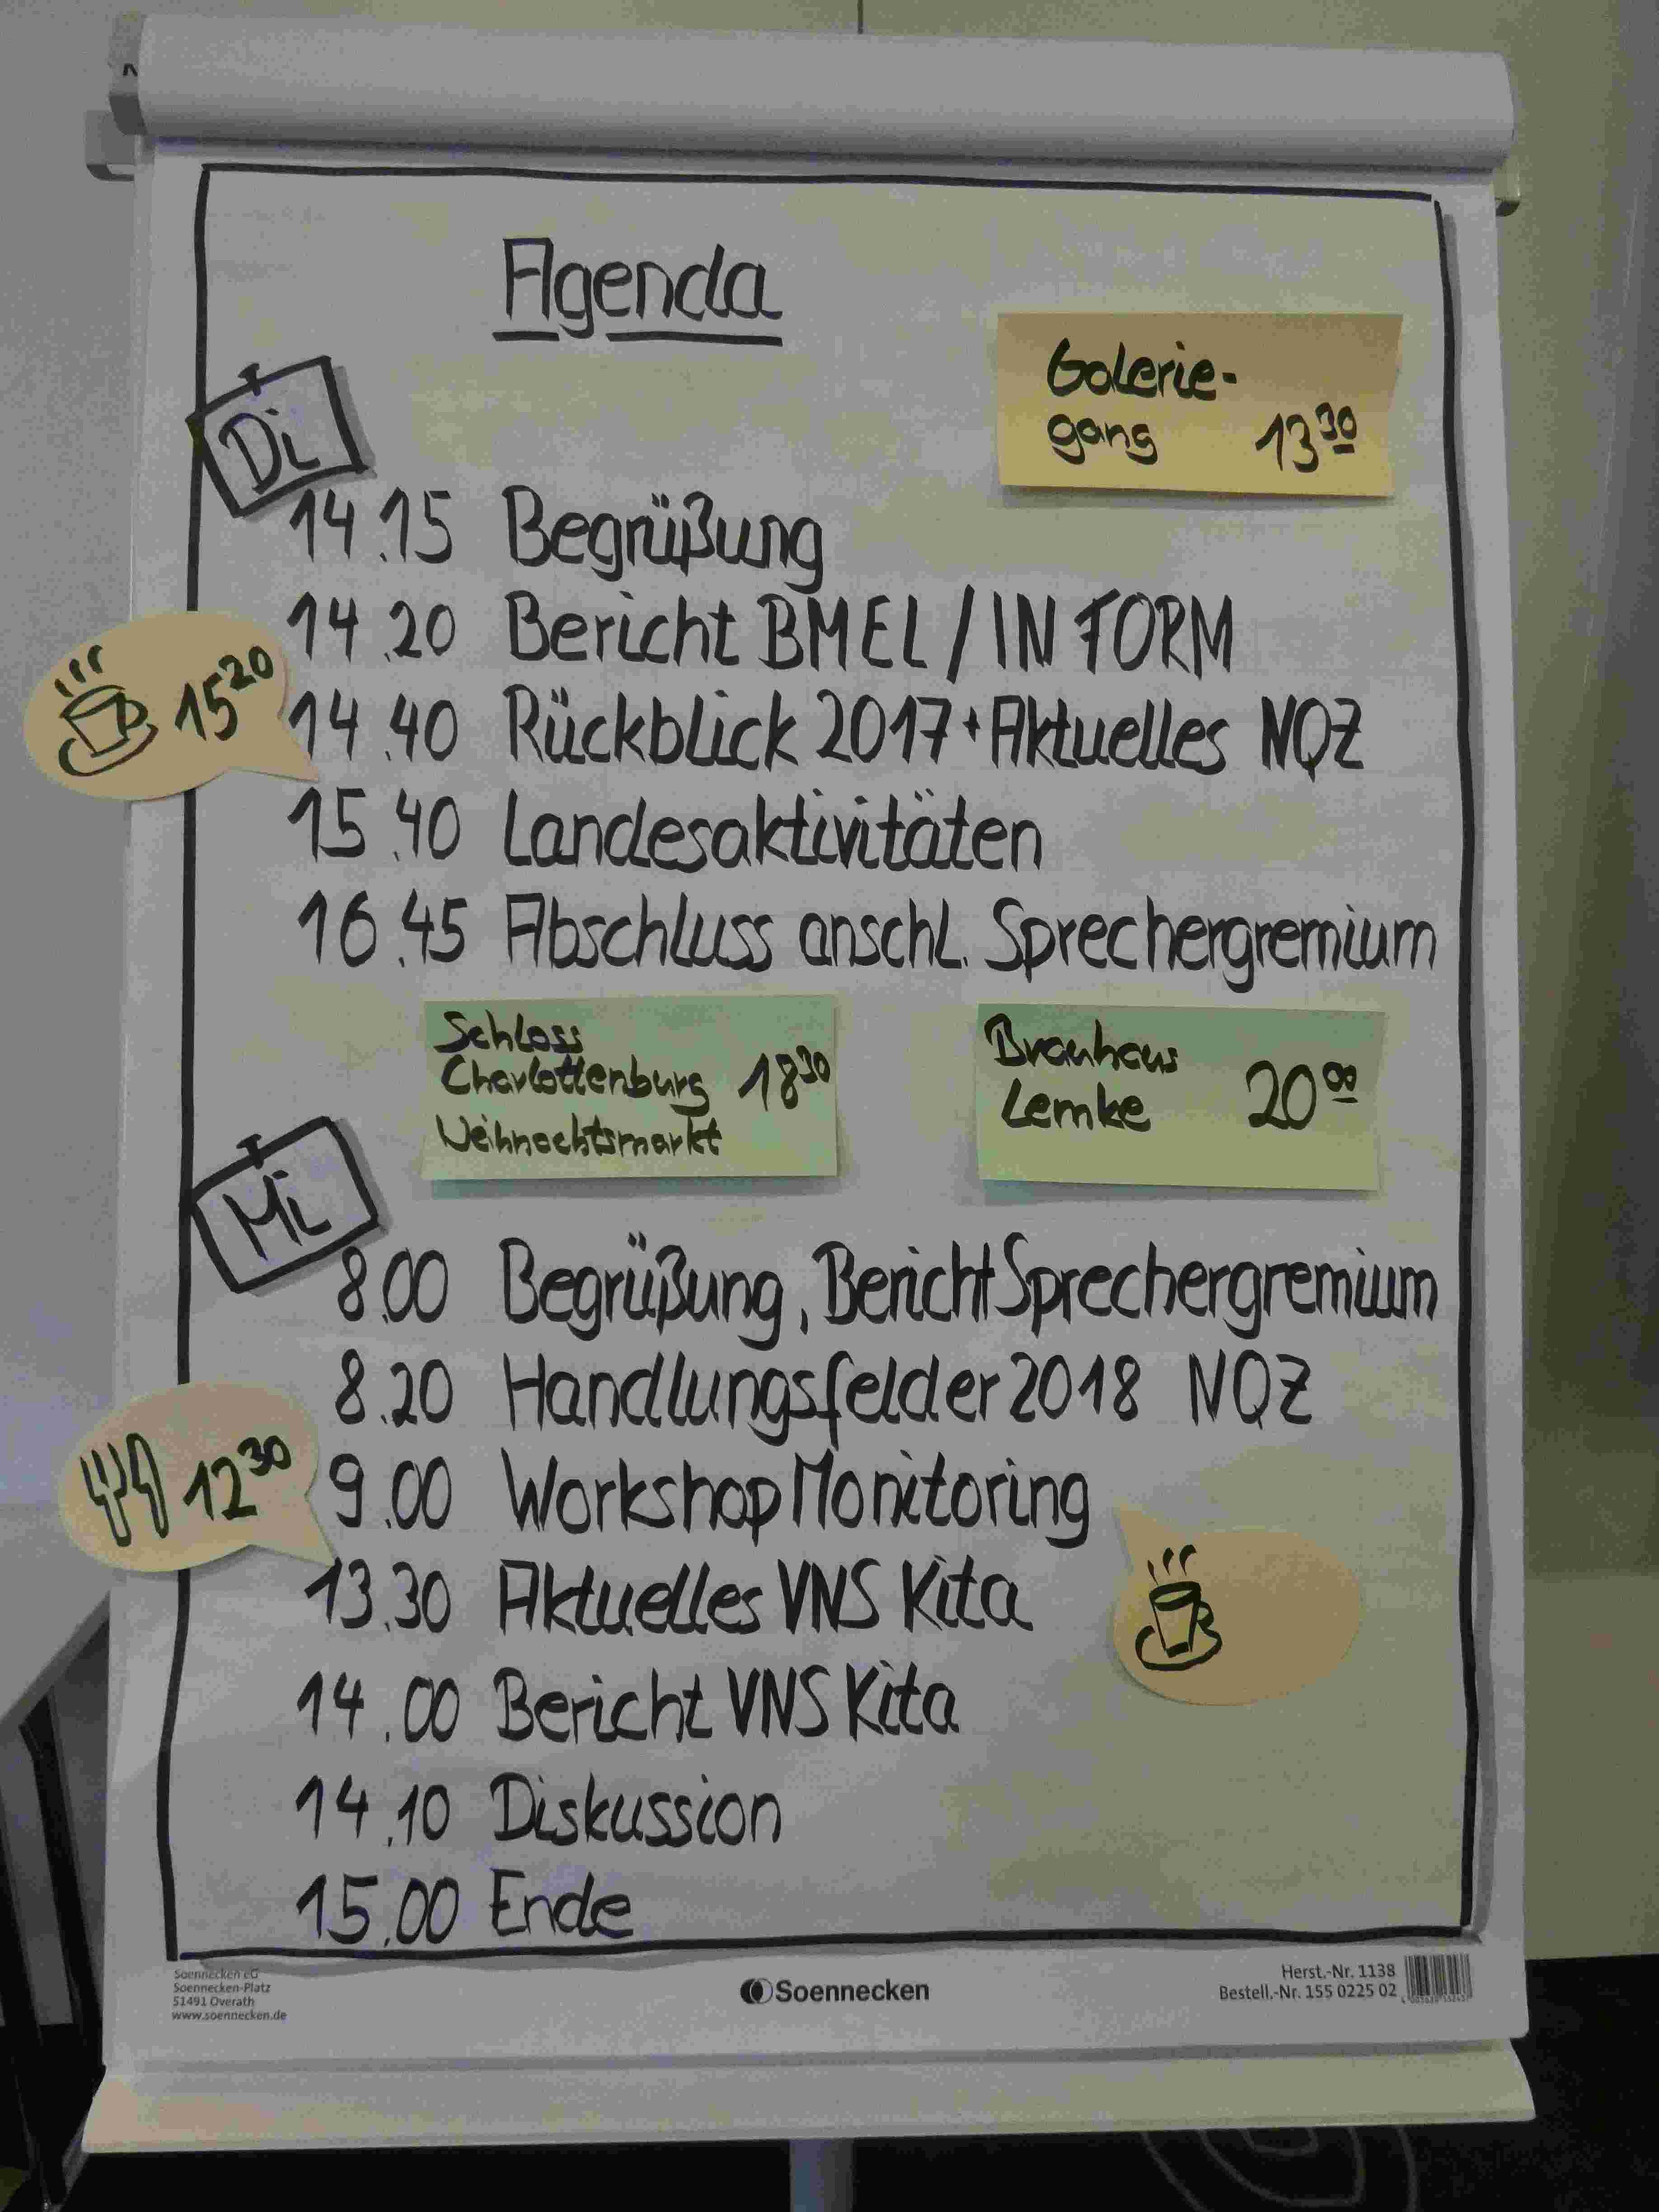 Agenda
Galerie-
gang 13³⁰
Di
14.15 Begrüßung
14.20 Bericht BMEL / IN FORM
15²⁰
14.40 Rückblick 2017 + Aktuelles NQZ
15.40 Landesaktivitäten
16.45 Abschluss anschl. Sprechergremium
Schloss
Charlottenburg 18³⁰
Weihnachtsmarkt
Brauhaus
Lemke 20⁰⁰
Mi
8.00 Begrüßung, Bericht Sprechergremium
8.20 Handlungsfelder 2018 NQZ
12³⁰
9.00 Workshop Monitoring
13.30 Aktuelles VNS Kita
14.00 Bericht VNS Kita
14.10 Diskussion
15.00 Ende
Soennecken eG
Soennecken-Platz
51491 Overath
www.soennecken.de
Soennecken
Herst.-Nr. 1138
Bestell.-Nr. 155 0225 02